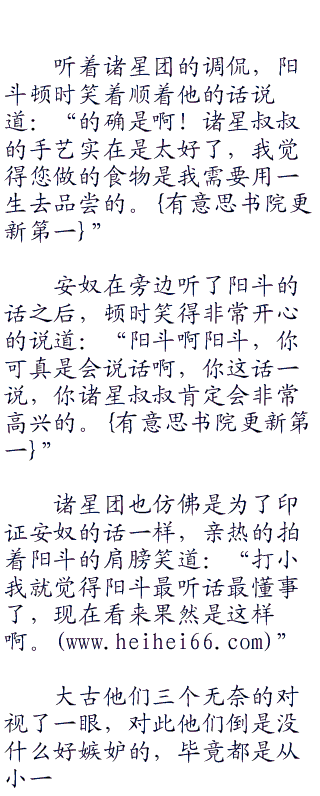 听着诸星团的调侃，阳
斗顿时笑着顺着他的话说
道：“的确是啊！诸星叔叔
的手艺实在是太好了，我觉
得您做的食物是我需要用一
生去品尝的。{有意思书院更
新第一}”
安奴在旁边听了阳斗的
话之后，顿时笑得非常开心
的说道：“阳斗啊阳斗，你
可真是会说话啊，你这话一
说，你诸星叔叔肯定会非常
高兴的。{有意思书院更新第
一}”
诸星团也仿佛是为了印
证安奴的话一样，亲热的拍
着阳斗的肩膀笑道：“打小
我就觉得阳斗最听话最懂事
了，现在看来果然是这样
啊。(www.heihei66.com)”
大古他们三个无奈的对
视了一眼，对此他们倒是没
什么好嫉妒的，毕竟都是从
小一